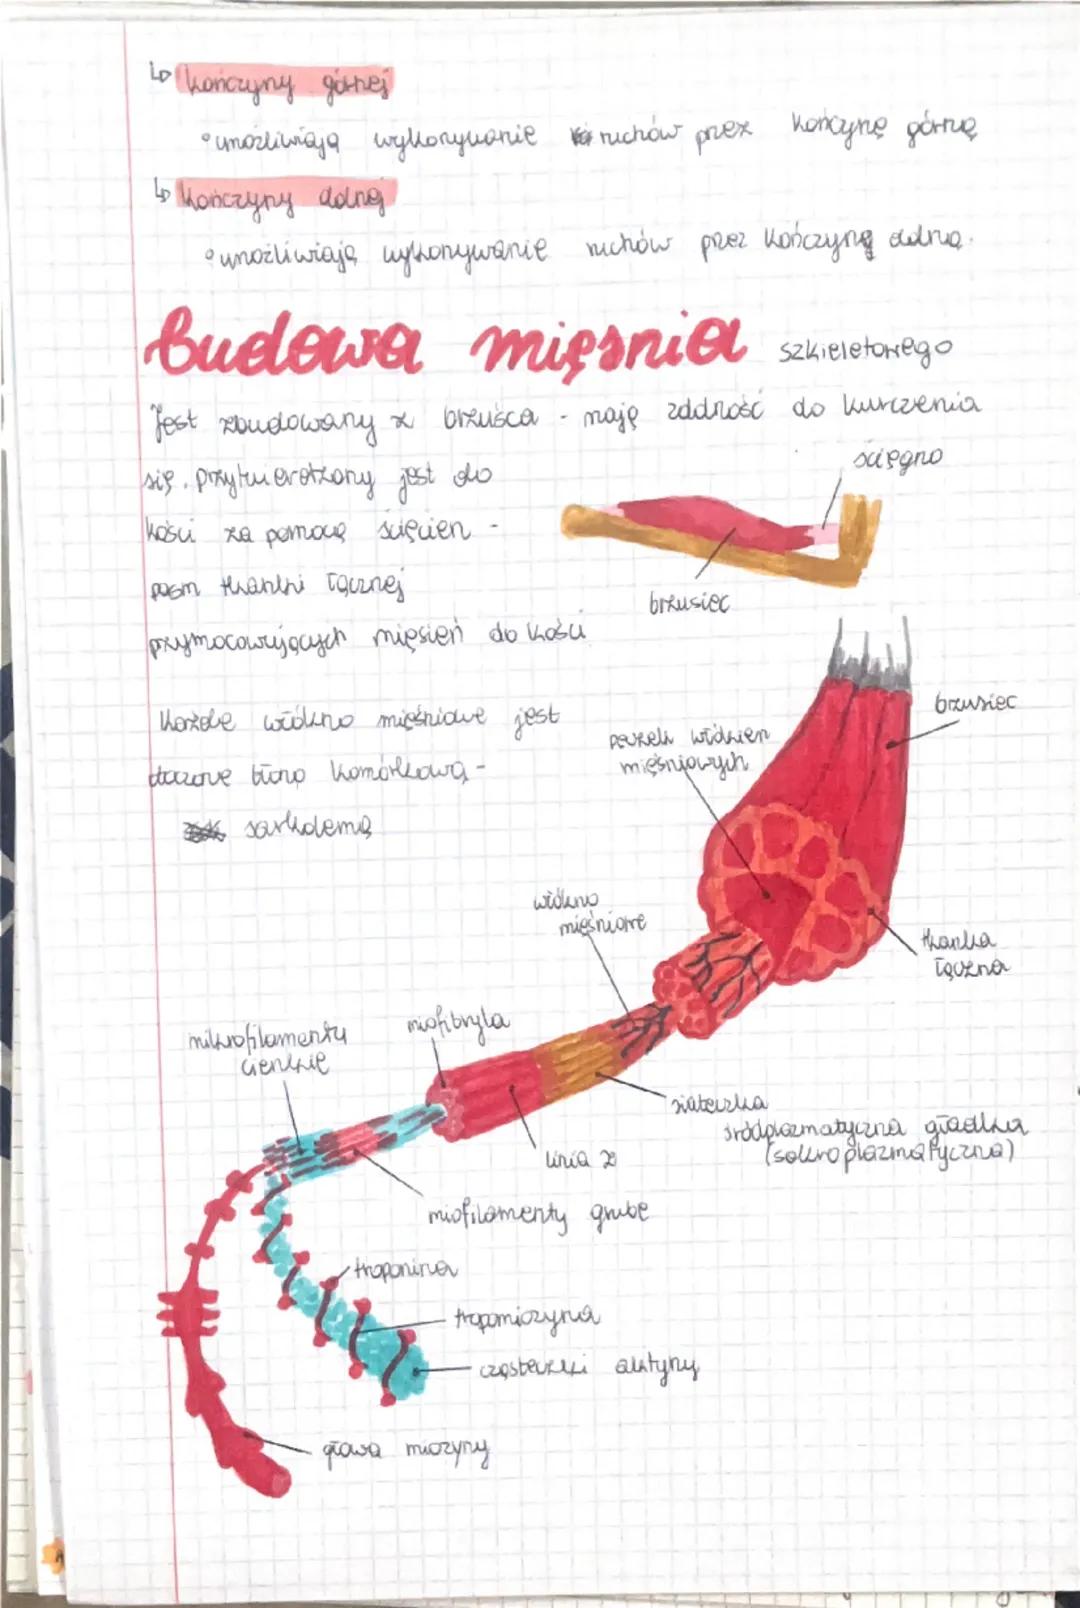 ↳ kończyny górnej
° umożliwiają wykonywanie ruchów przez kończynę górną
↳ kończyny dolnej
° umożliwiają wykonywanie ruchów przez kończynę dolną.
Budowa mięśnia szkieletowego
Jest zbudowany z brzuśca - mają zdolność do kurczenia
się. przytwierdzony jest do
kości za pomocą ścięgien -
pasm tkanki łącznej
przymocowujących mięsień do kości
ścięgno
brzusiec
Każde włókno mięśniowe jest
otoczone błoną komórkową -
sarkolemą
brzusiec
pęczek włókien
mięśniowych
włókno
mięśniowe
tkanka
łączna
mikrofilamenty
cienkie
miofibryla
siateczka
śródplazmatyczna gładka
(sakroplazmatyczna)
linia z
miofilamenty grube
troponina
tropomiozyna
cząsteczki aktyny
głowa miozyny